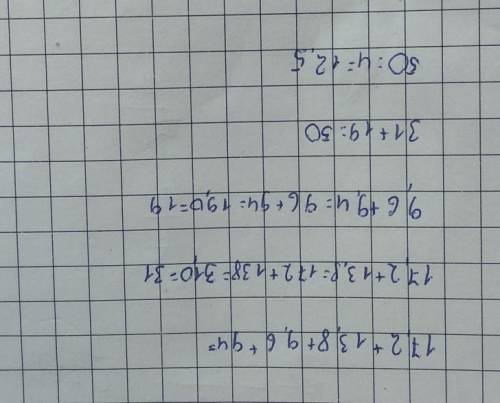 17,2 + 13,8 + 9,6 + 94=
17,2 + 13,8 = 172 + 138 = 31,0 = 31
9,6 + 9,4 = 96 + 94 = 19,0 = 19
31 + 19 = 50
50 : 4 = 12,5